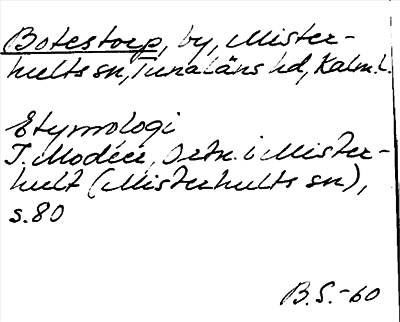 Botestorp, by, Mister-
hults sn, Tunaläns hd, Kalm. l.
Etymologi
I. Modéer, Ortn. i Mister-
hult (Misterhults sn),
s. 80
B.S.-60